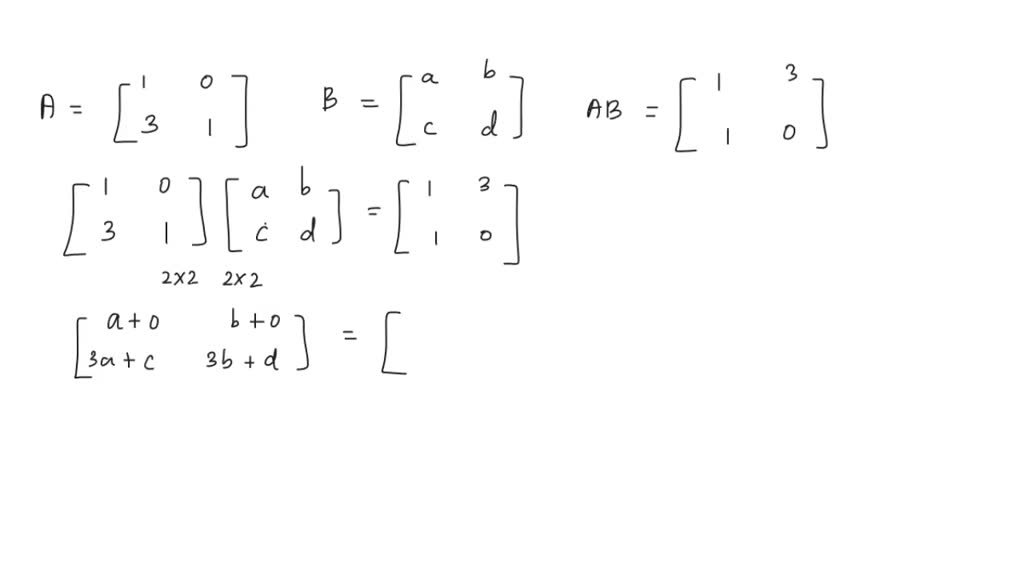 A = [1 0 3 1] B = [a b c d] AB = [1 3 1 0]
[1 0 3 1] [a b c d] = [1 3 1 0]
2×2 2×2
[a+0 b+0 3a+c 3b+d] = [